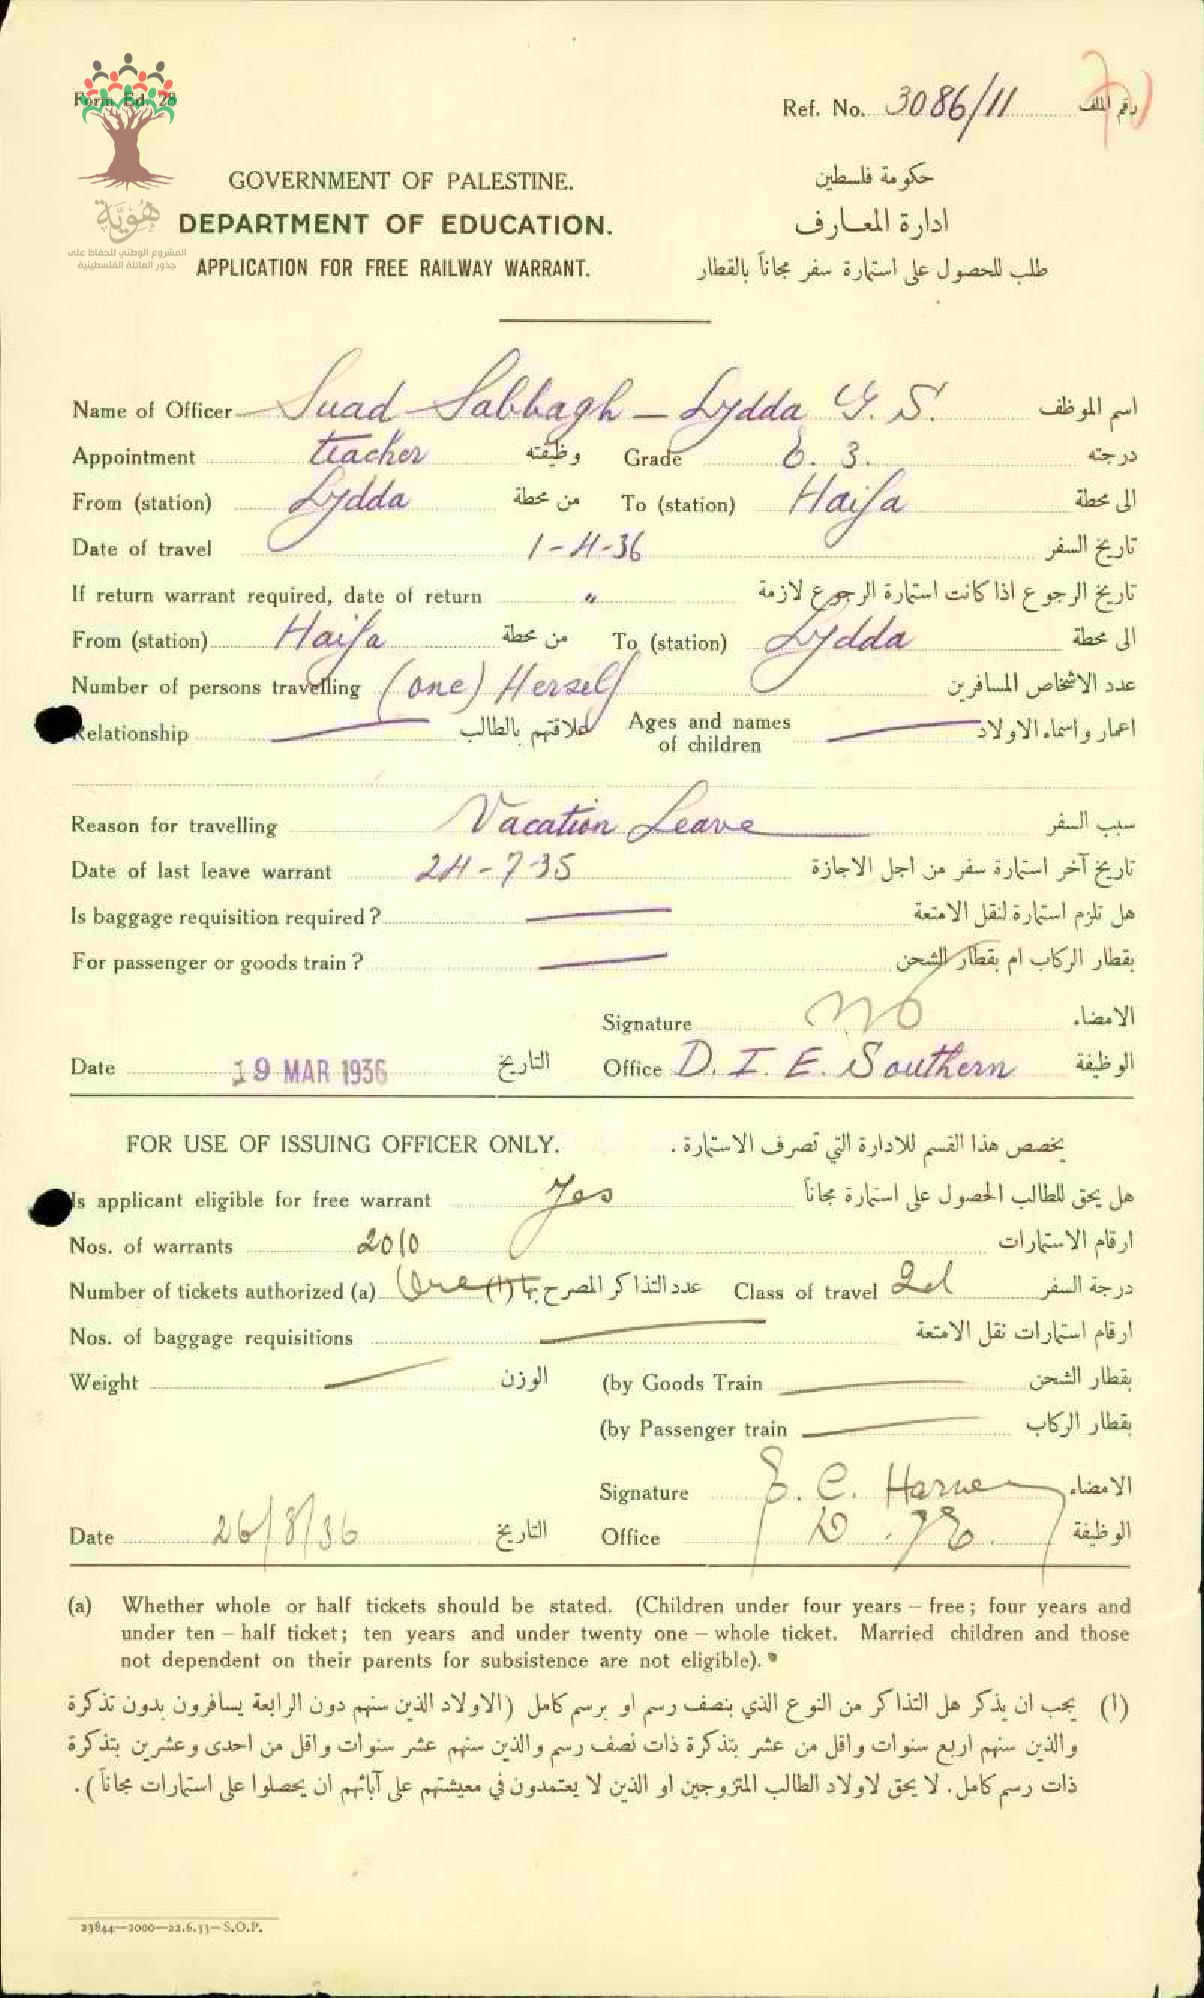 Form Ed. 28
Ref. No. 3086/11 رقم الملف
هُويَّة
المشروع الوطني للحفاظ على
جذور العائلة الفلسطينية
GOVERNMENT OF PALESTINE. حكومة فلسطين
DEPARTMENT OF EDUCATION. ادارة المعارف
APPLICATION FOR FREE RAILWAY WARRANT. طلب للحصول على استمارة سفر مجاناً بالقطار
Name of Officer Suad Sabbagh – Lydda G. S. اسم الموظف
Appointment teacher وظيفته Grade 6. 3. درجته
From (station) Lydda من محطة To (station) Haifa الى محطة
Date of travel 1-4-36 تاريخ السفر
If return warrant required, date of return " تاريخ الرجوع اذا كانت استمارة الرجوع لازمة
From (station) Haifa من محطة To (station) Lydda الى محطة
Number of persons travelling (one) Herself عدد الاشخاص المسافرين
Relationship علاقتهم بالطالب Ages and names of children اعمار واسماء الاولاد
Reason for travelling Vacation Leave سبب السفر
Date of last leave warrant 24-7-35 تاريخ آخر استمارة سفر من اجل الاجازة
Is baggage requisition required ? هل تلزم استمارة لنقل الامتعة
For passenger or goods train ? بقطار الركاب ام بقطار الشحن
Signature الامضاء
Date 19 MAR 1936 التاريخ Office D. I. E. Southern الوظيفة
FOR USE OF ISSUING OFFICER ONLY. يخصص هذا القسم للادارة التي تصرف الاستمارة .
Is applicant eligible for free warrant Yes هل يحق للطالب الحصول على استمارة مجاناً
Nos. of warrants 2010 ارقام الاستمارات
Number of tickets authorized (a) One (1) عدد التذاكر المصرح بها Class of travel 2d درجة السفر
Nos. of baggage requisitions ارقام استمارات نقل الامتعة
Weight الوزن (by Goods Train بقطار الشحن
(by Passenger train بقطار الركاب
Signature S. C. الامضاء
Date 26/3/36 التاريخ Office الوظيفة
(a) Whether whole or half tickets should be stated. (Children under four years – free; four years and
under ten – half ticket; ten years and under twenty one – whole ticket. Married children and those
not dependent on their parents for subsistence are not eligible).
(ا) يجب ان يذكر هل التذاكر من النوع الذي بنصف رسم او برسم كامل (الاولاد الذين سنهم دون الرابعة يسافرون بدون تذكرة
والذين سنهم اربع سنوات واقل من عشر بتذكرة ذات نصف رسم والذين سنهم عشر سنوات واقل من احدى وعشرين بتذكرة
ذات رسم كامل. لا يحق لاولاد الطالب المتزوجين او الذين لا يعتمدون في معيشتهم على آبائهم ان يحصلوا على استمارات مجاناً) .
23844—2000—22.6.33—S.O.P.